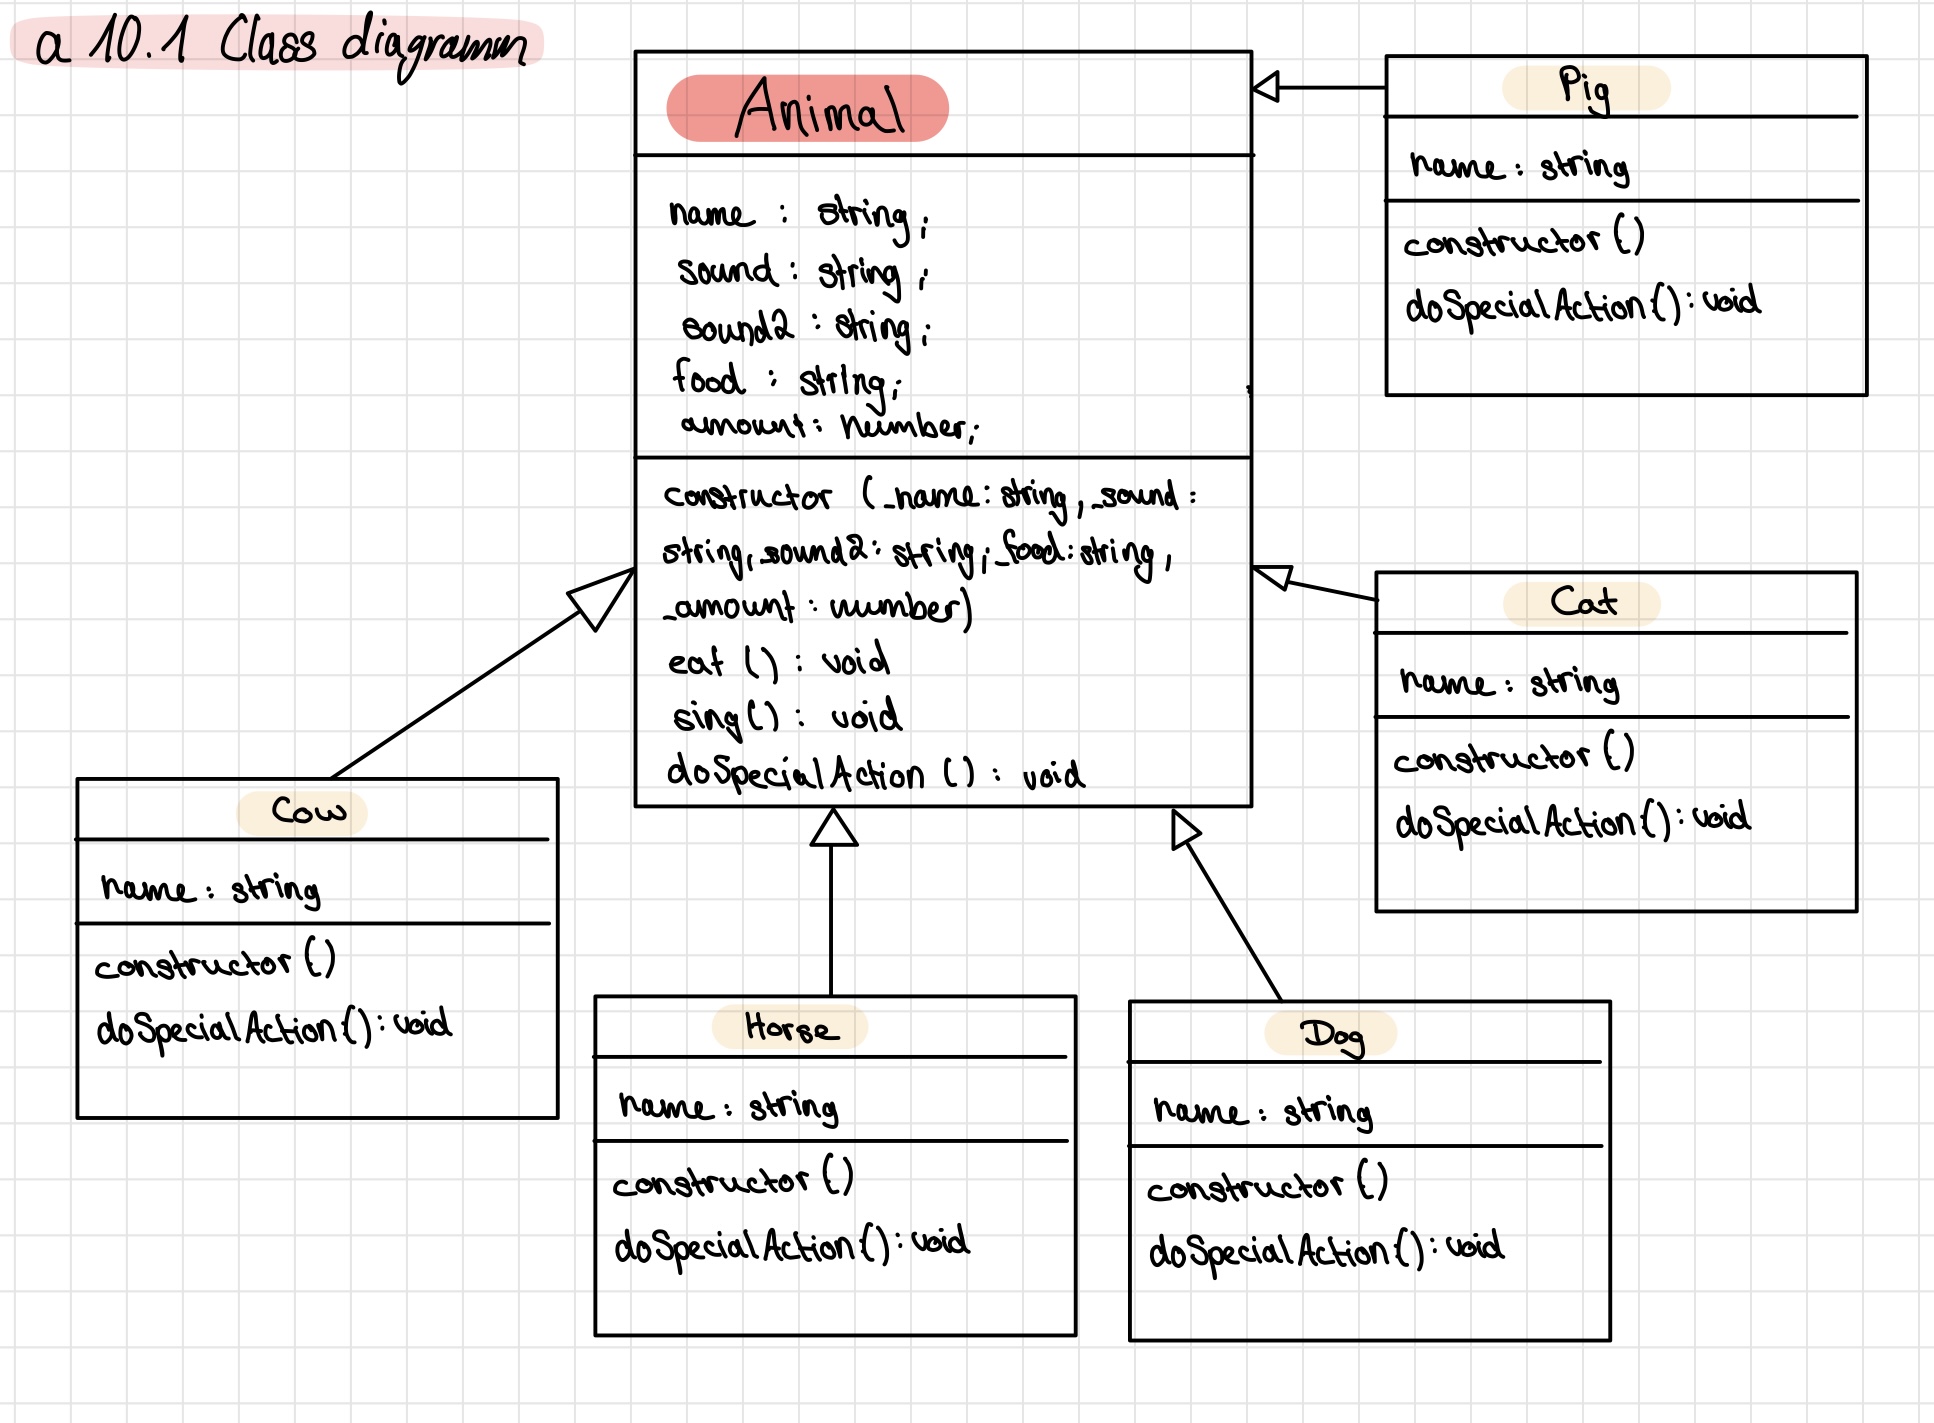 a 10.1 Class diagramm
Animal
name : string;
sound : string;
sound2 : string;
food : string;
amount: number;
constructor (_name: string, _sound :
string, _sound2: string; _food: string,
_amount : number)
eat () : void
sing() : void
doSpecialAction () : void
Pig
name : string
constructor ()
doSpecialAction(): void
Cat
name : string
constructor ()
doSpecialAction(): void
Cow
name : string
constructor ()
doSpecialAction(): void
Horse
name : string
constructor ()
doSpecialAction(): void
Dog
name : string
constructor ()
doSpecialAction(): void